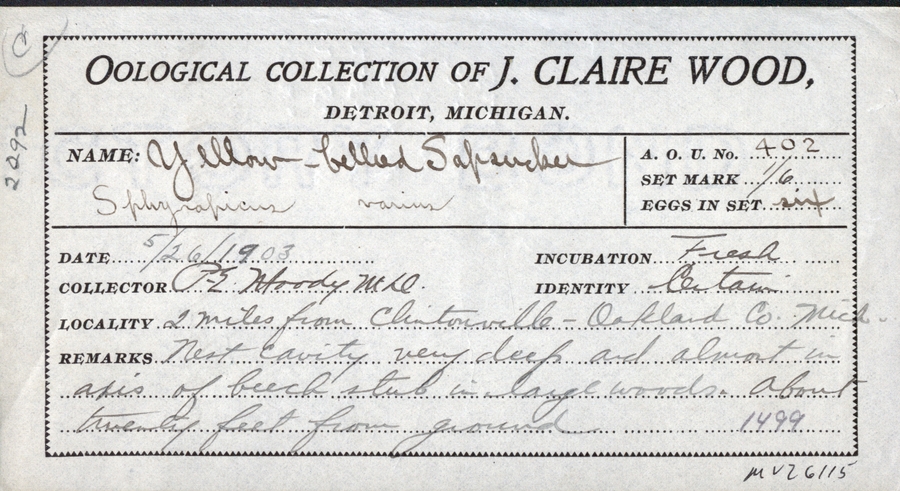 C
2092
OOLOGICAL COLLECTION OF J. CLAIRE WOOD,
DETROIT, MICHIGAN.
NAME: Yellow-bellied Sapsucker
Sphyrapicus varius
A. O. U. No. 402
SET MARK 1/6
EGGS IN SET six
DATE 5/26/1903
INCUBATION Fresh
COLLECTOR P.E. Moody M.D.
IDENTITY Certain
LOCALITY 2 miles from Clintonville - Oakland Co. Mich.
REMARKS Nest cavity very deep and almost in
axis of beech stub in large woods. About
twenty feet from ground
1499
MVZ 6115